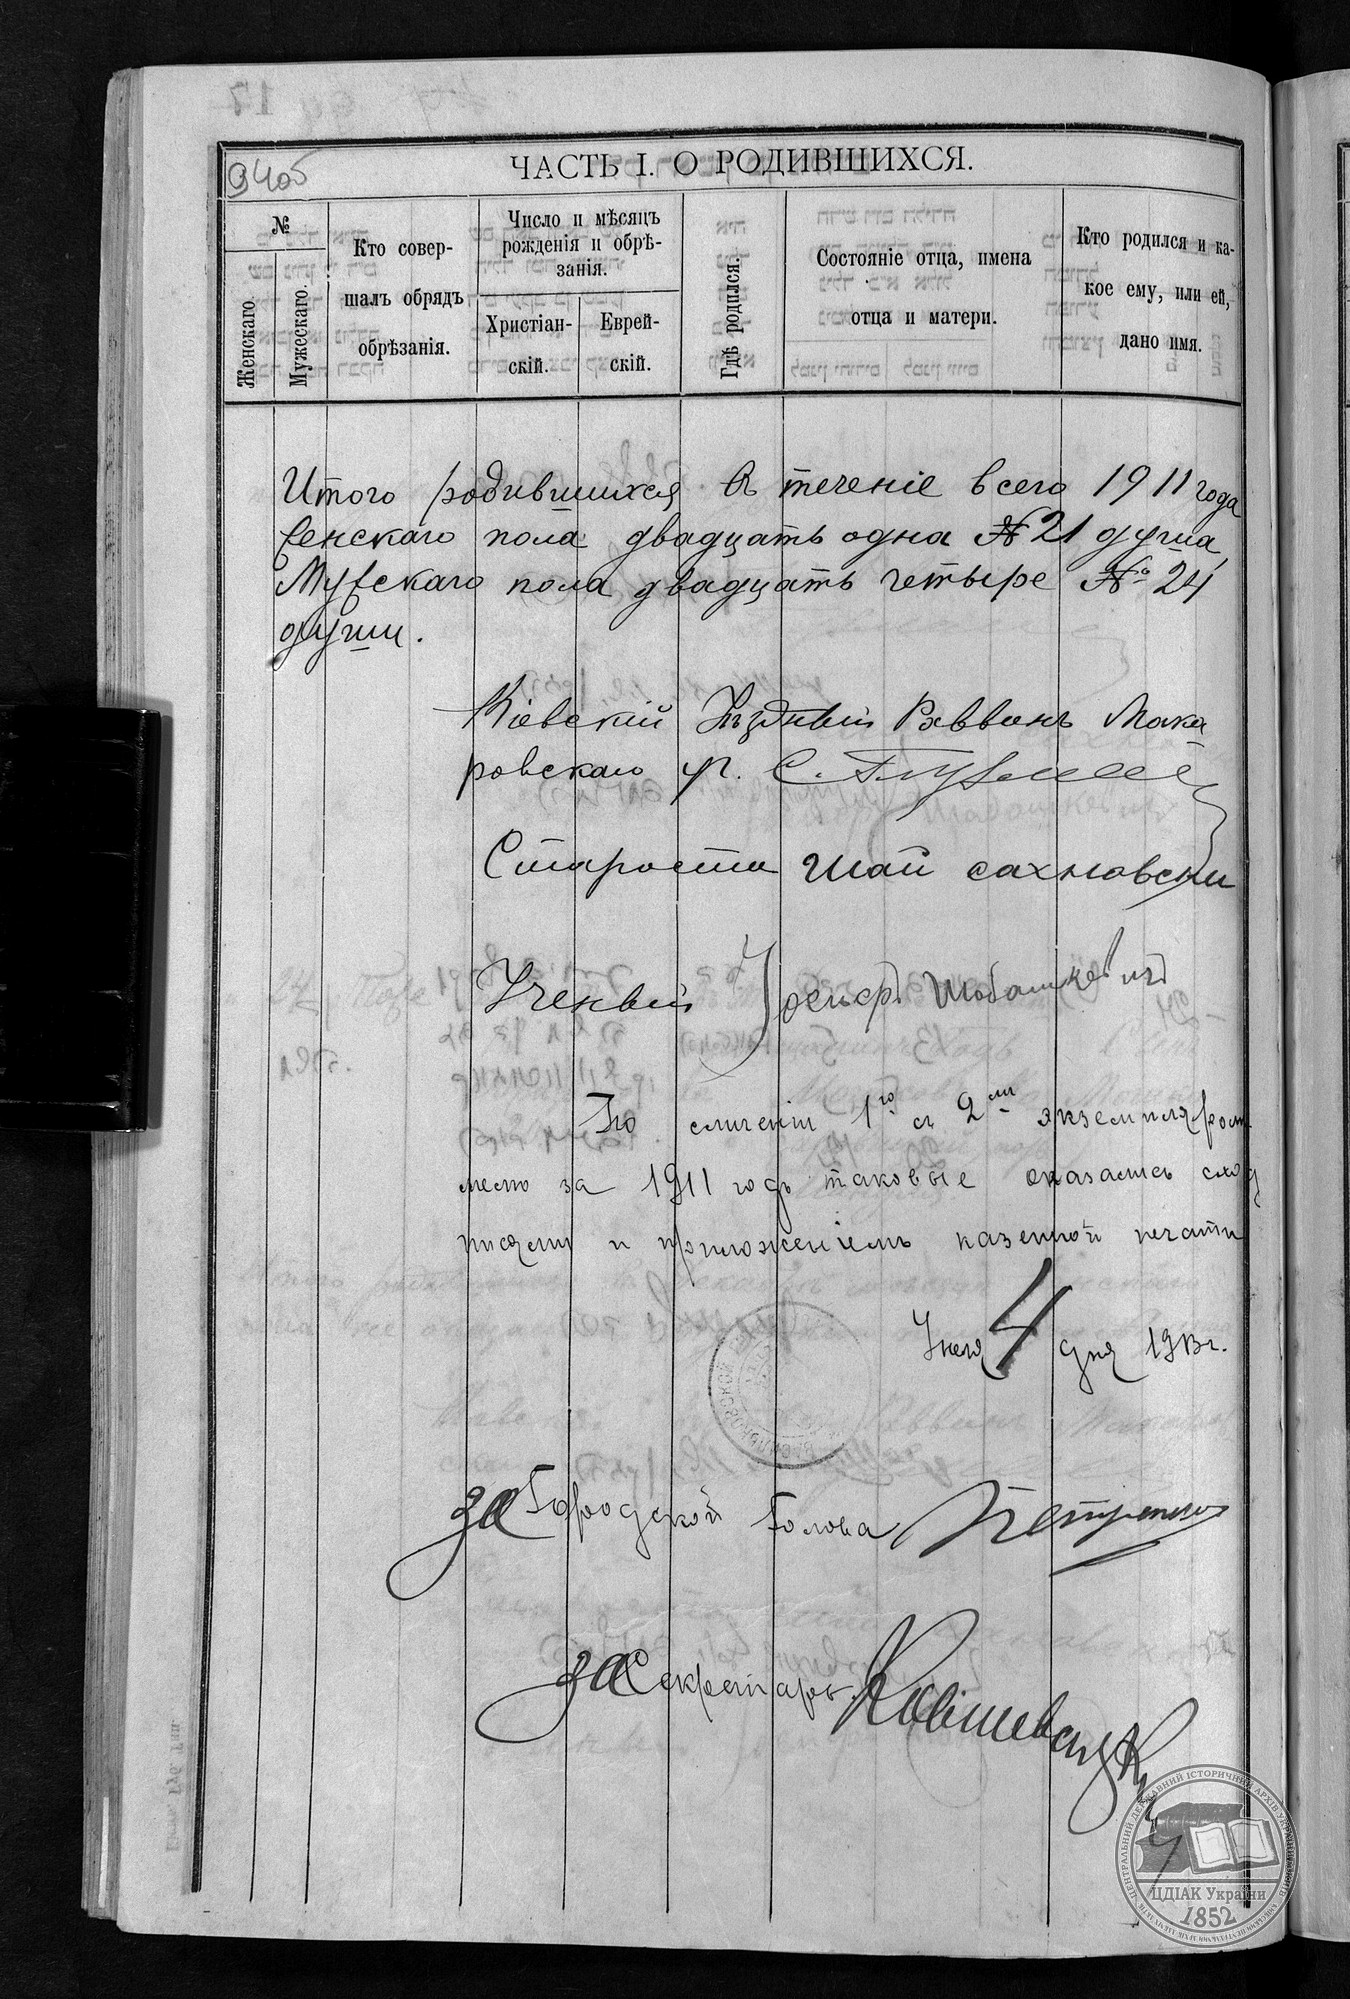 94об
ЧАСТЬ I. О РОДИВШИХСЯ.
№
Женскаго.
Мужескаго.
Кто совер-
шалъ обрядъ
обрѣзанія.
Число и мѣсяцъ
рожденія и обрѣ-
занія.
Христіан-
скій.
Еврей-
скій.
Гдѣ родился.
Состояніе отца, имена
отца и матери.
Кто родился и ка-
кое ему, или ей,
дано имя.
Итого родившихся въ теченіе всего 1911 года
Женскаго пола двадцать одна № 21 душа,
Мужскаго пола двадцать четыре № 24
души.
Кіевскій Уѣздный Раввинъ Мака
ровскаго уч. С.
Староста Шай Сахновски
Ученый
По сличеніи 1го съ 2мъ экземпляром
за 1911 годъ таковые оказались сход
и приложеніемъ казенной печати
4 дня 1913 г.
за Городской Голова
за Секретарь
ЦЕНТРАЛЬНИЙ ДЕРЖАВНИЙ ІСТОРИЧНИЙ АРХІВ УКРАЇНИ
ЦДІАК України
1852